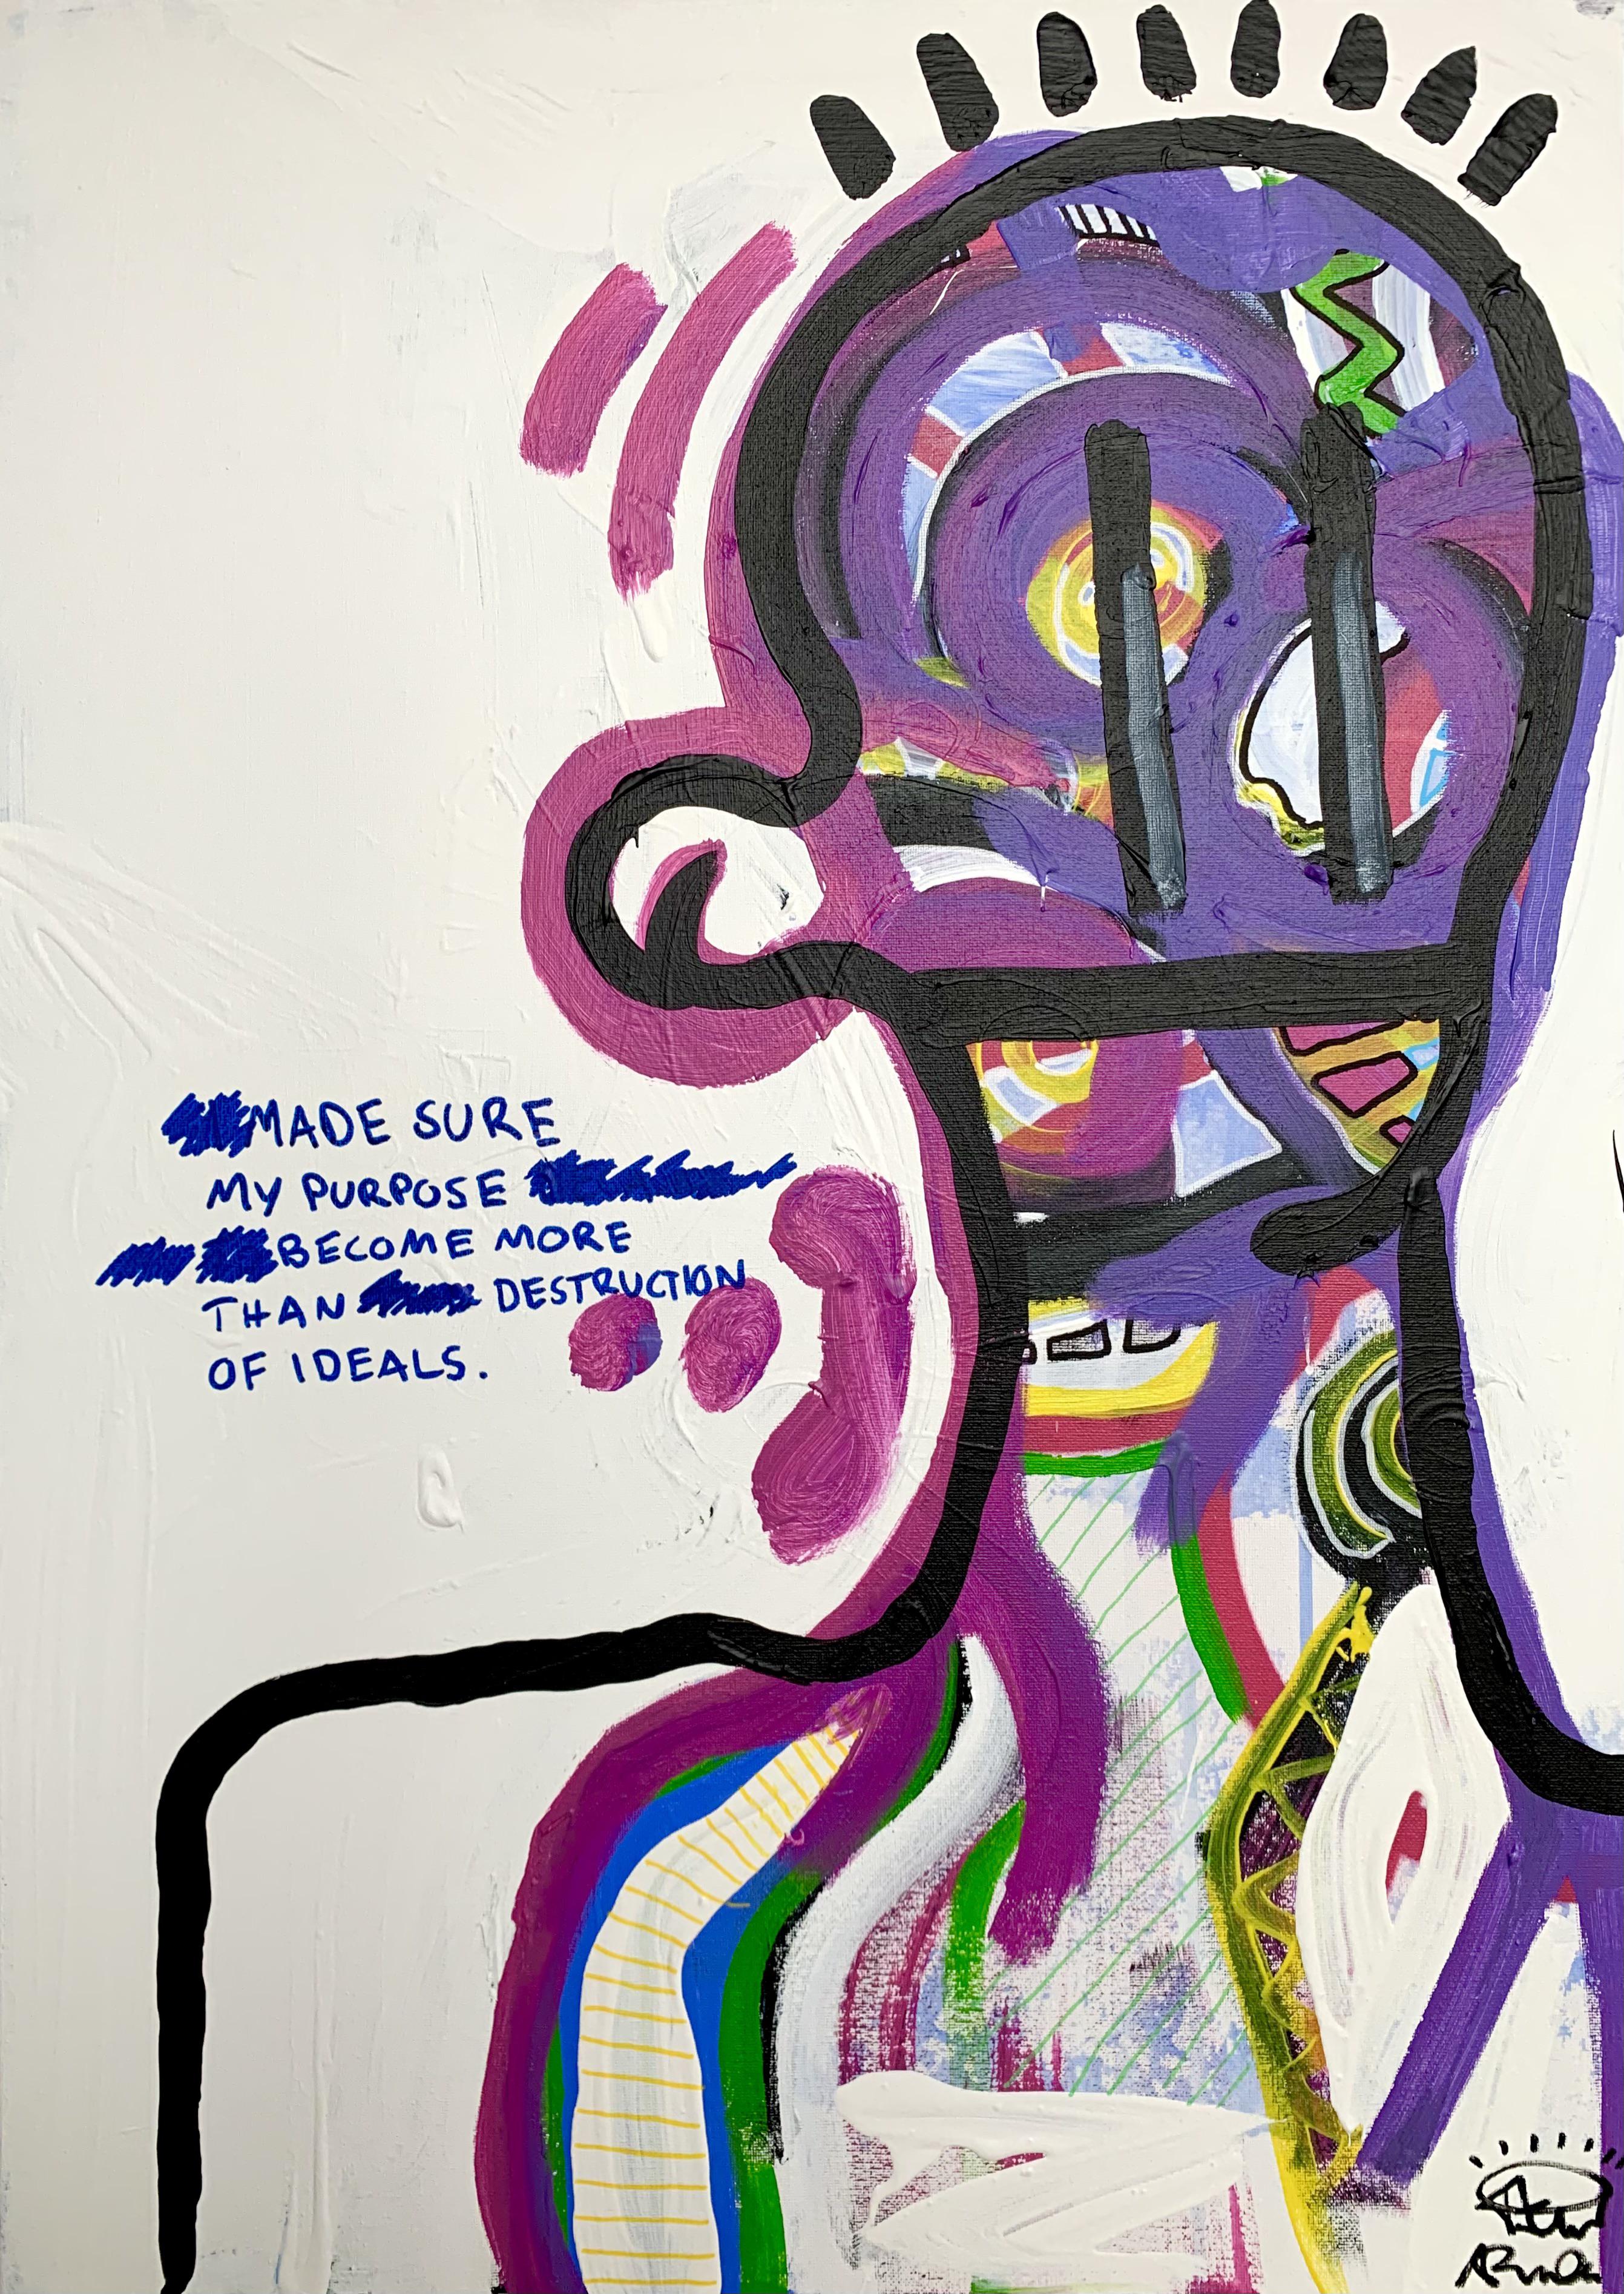 MADE SURE
MY PURPOSE
BECOME MORE
THAN DESTRUCTION
OF IDEALS.